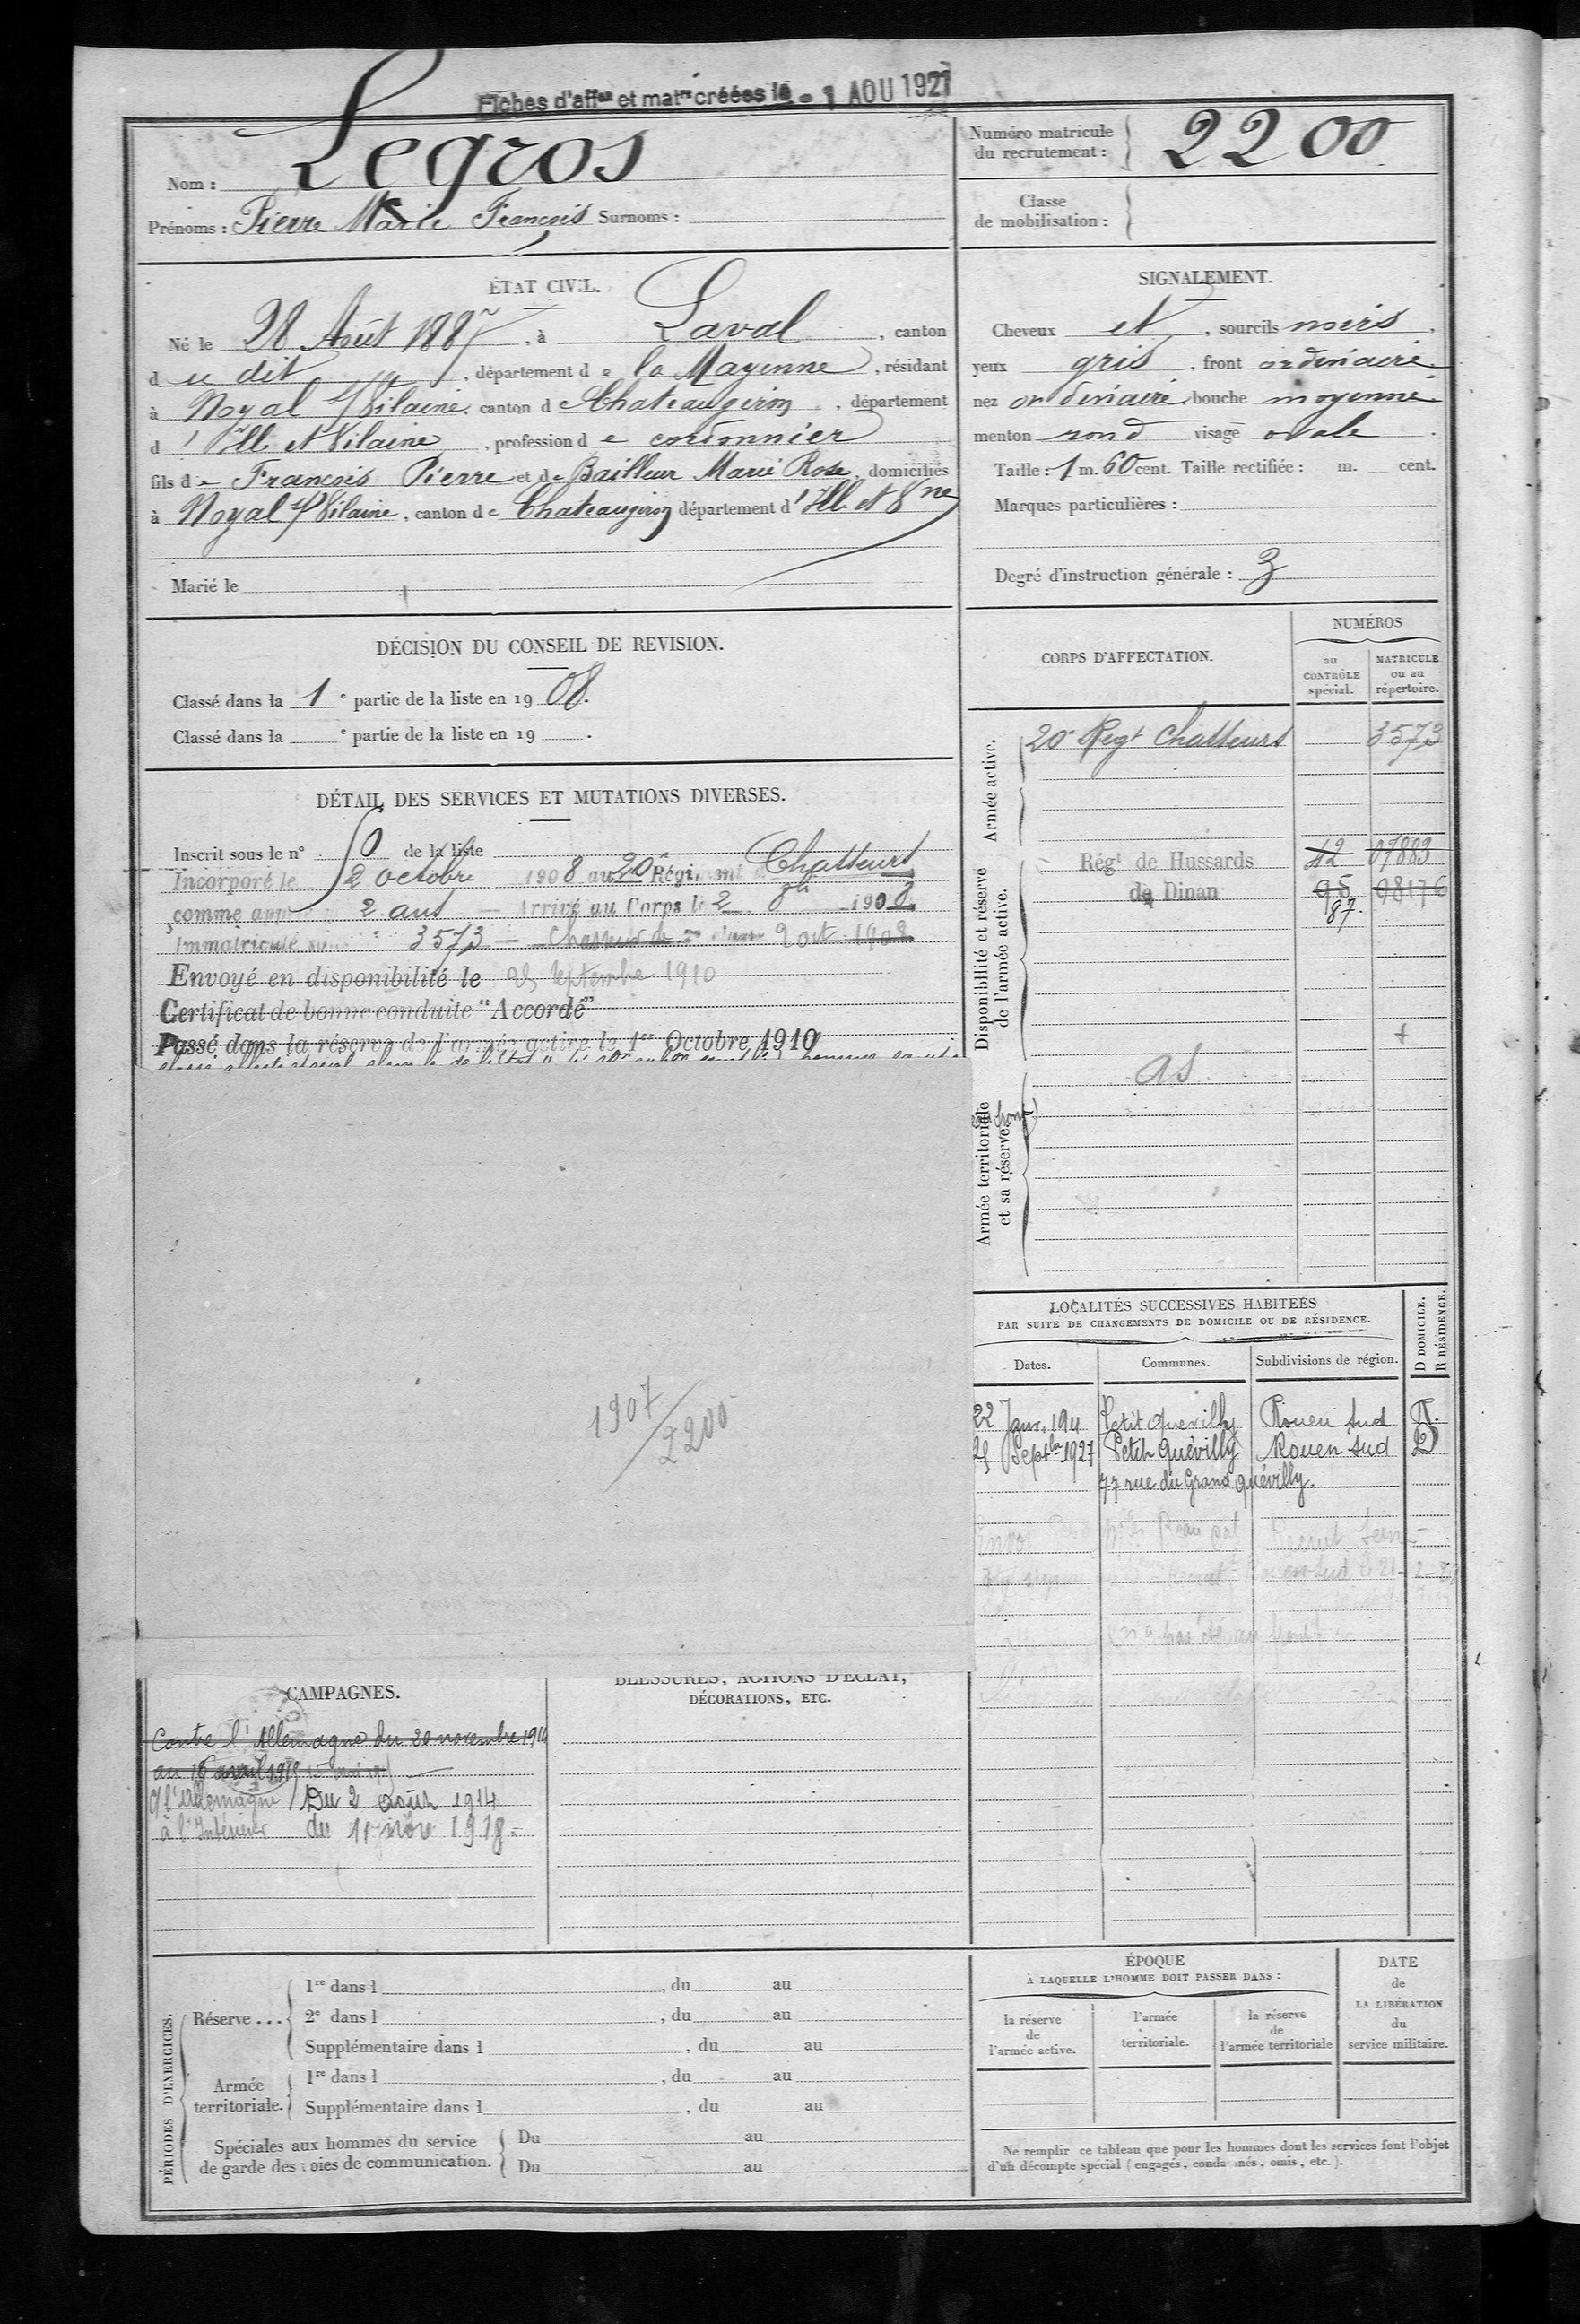 Fiches d'aff^on et mat^re créées le - 1 AOU 1927
Nom : Legros
Prénoms : Pierre Marie François Surnoms :
Numéro matricule
du recrutement : 2200
Classe
de mobilisation :
ÉTAT CIVIL.
Né le 28 Août 1887, à Laval, canton
d u dit, département de la Mayenne, résidant
à Noyal s/Vilaine, canton d Chateaugiron, département
d'Ille et Vilaine, profession de cordonnier
fils de François Pierre et de Bailleur Marie Rose, domiciliés
à Noyal s/Vilaine, canton de Chateaugiron département d'Ille et V^ne
Marié le
SIGNALEMENT.
Cheveux et, sourcils noirs,
yeux gris, front ordinaire
nez ordinaire bouche moyenne
menton rond visage ovale.
Taille : 1 m. 60 cent. Taille rectifiée : m. cent.
Marques particulières :
Degré d'instruction générale : 3
DÉCISION DU CONSEIL DE REVISION.
Classé dans la 1^e partie de la liste en 1908.
Classé dans la ^e partie de la liste en 19 .
DÉTAIL DES SERVICES ET MUTATIONS DIVERSES.
Inscrit sous le n° 50 de la liste
Incorporé le 2 octobre 1908 au 20^e Régiment Chasseurs
comme 2 ans — Arrivé au Corps le 2 8^bre 1908
Immatriculé sous 3573 — Chasseur de 2 oct 1908
Envoyé en disponibilité le 25 septembre 1910
Certificat de bonne conduite "Accordé"
Passé dans la réserve de l'armée active le 1^er Octobre 1910
1907
2200
CORPS D'AFFECTATION.
NUMÉROS
au
CONTRÔLE
spécial.
MATRICULE
ou au
répertoire.
Armée active.
20^e Rég^t Chasseurs 3573
Disponibilité et réserve
de l'armée active.
Rég^t de Hussards 42 07883
de Dinan 95 08176
87.
as
Armée territoriale
et sa réserve.
front)
LOCALITÉS SUCCESSIVES HABITÉES
PAR SUITE DE CHANGEMENTS DE DOMICILE OU DE RÉSIDENCE.
Dates.
Communes.
Subdivisions de région.
D DOMICILE.
R RÉSIDENCE.
22 Janv. 1911 Petit Quevilly Rouen Sud R.
25 Sept^bre 1927 Petit Quévilly Rouen Sud D
77 rue du Grand Quévilly.
CAMPAGNES.
Contre l'Allemagne du 20 novembre 1914
au 16 avril 1919
c/ l'Allemagne Du 2 août 1914
à l'Intérieur du 11 nov^bre 1918
BLESSURES, ACTIONS D'ÉCLAT,
DÉCORATIONS, ETC.
PÉRIODES D'EXERCICES.
Réserve ...
1^re dans l , du au
2^e dans l , du au
Supplémentaire dans l , du au
Armée
territoriale.
1^re dans l , du au
Supplémentaire dans l , du au
Spéciales aux hommes du service
de garde des voies de communication.
Du au
Du au
ÉPOQUE
À LAQUELLE L'HOMME DOIT PASSER DANS :
la réserve
de
l'armée active.
l'armée
territoriale.
la réserve
de
l'armée territoriale
DATE
de
LA LIBÉRATION
du
service militaire.
Ne remplir ce tableau que pour les hommes dont les services font l'objet
d'un décompte spécial (engagés, condamnés, omis, etc.).